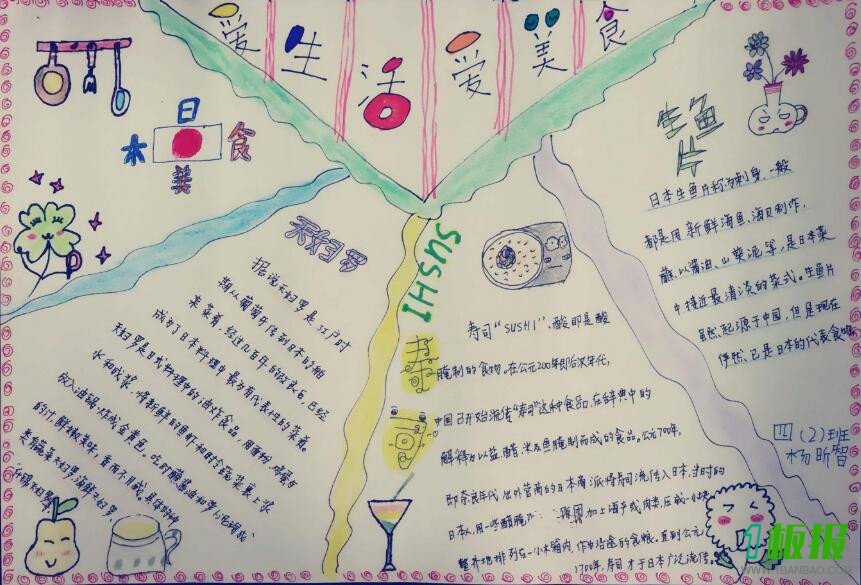 爱生活爱美食
日本美食
天妇罗
据说天妇罗是江户时
期从葡萄牙传到日本的舶
来菜肴,经过几百年的改良后,已经
成为了日本料理中最为有代表性的菜肴。
天妇罗是日式料理中的油炸食品,用面粉、鸡蛋与
水和成浆,将新鲜的鱼虾和时令蔬菜裹上浆
放入油锅炸成金黄色。吃时蘸酱油和萝卜泥调成
的汁,鲜嫩美味,香而不腻。具体的种
类有蔬菜天妇罗、海鲜天妇罗、
什锦天妇罗。
SUSHI
寿司“SUSHI”、酸即是酸
腌制的食物。在公元200年即后汉年代,
中国已开始流传“寿司”这种食品,在辞典中的
解释为以盐、醋、米及鱼腌制而成的食品。公元700年,
即奈良年代,出外营商的日本商派将寿司流传入日本,当时的
日本人,用一些醋腌 饭团加上海产或肉类,压成一小块
整齐地排列在一小木箱内,作为沿途的食粮,直到公元
1700年,寿司才于日本广泛流传
生鱼片
日本生鱼片称为刺身,一般
都是用新鲜海鱼、海贝制作,
蘸以酱油、山葵泥等,是日本菜
中接近最清淡的菜式。生鱼片
虽然起源于中国,但是现在
俨然已是日本的代表食物
四(2)班
杨昕智
1板报
WWW.1BANBAO.COM